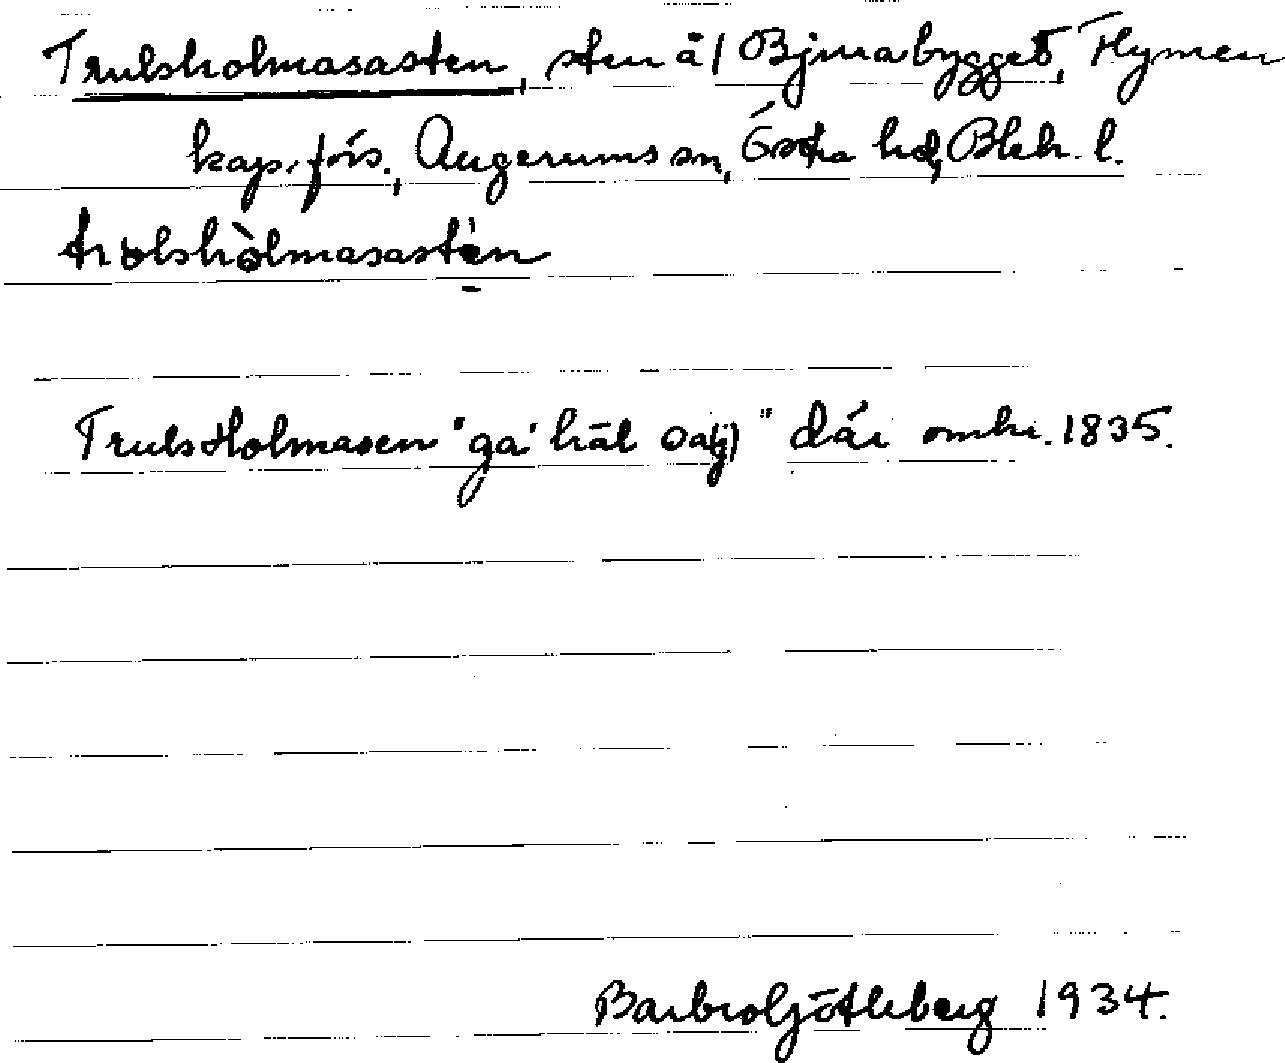 Trulsholmasasten, sten ä/ Bjurabygget, Flymen
kap. förs., Augerums sn, Östra hd, Blek. l.
trolshòlmasastén
Truls Holmasen "ga' häl säj" där omkr. 1835.
Barbro Götleberg 1934.